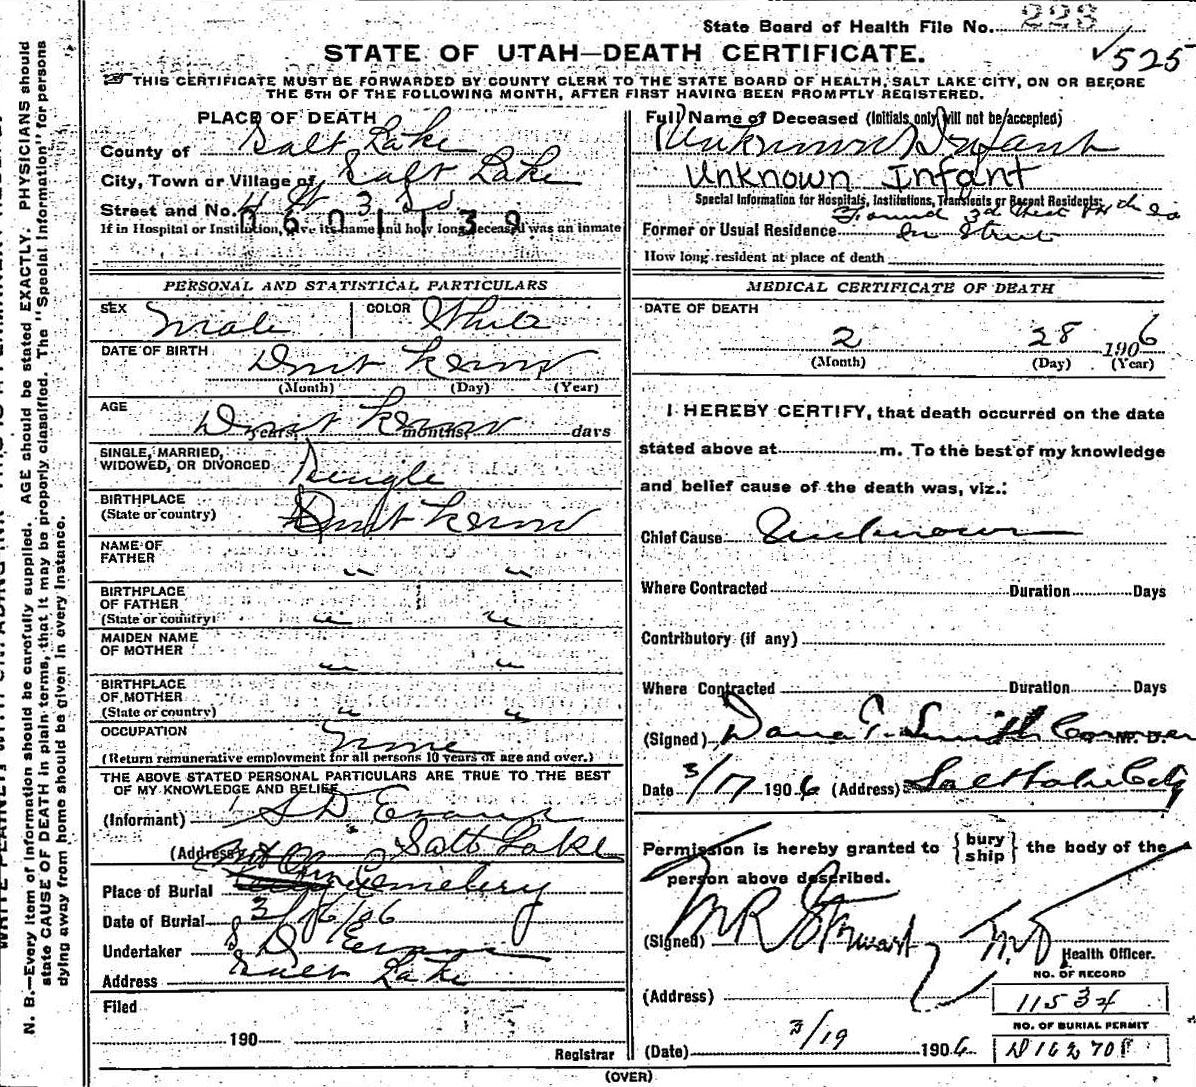 State Board of Health File No. 223
√525
STATE OF UTAH—DEATH CERTIFICATE.
THIS CERTIFICATE MUST BE FORWARDED BY COUNTY CLERK TO THE STATE BOARD OF HEALTH, SALT LAKE CITY, ON OR BEFORE
THE 5TH OF THE FOLLOWING MONTH, AFTER FIRST HAVING BEEN PROMPTLY REGISTERED.
N. B.—Every item of information should be carefully supplied. AGE should be stated EXACTLY. PHYSICIANS should
state CAUSE OF DEATH in plain terms, that it may be properly classified. The "Special Information" for persons
dying away from home should be given in every instance.
PLACE OF DEATH
County of Salt Lake
City, Town or Village of Salt Lake
Street and No. 4 3
0601139
If in Hospital or Institution, give its name and how long deceased was an inmate
PERSONAL AND STATISTICAL PARTICULARS
SEX Male COLOR White
DATE OF BIRTH Dont Know
(Month) (Day) (Year)
AGE Dont Know
years, months, days
SINGLE, MARRIED,
WIDOWED, OR DIVORCED Single
BIRTHPLACE
(State or country) Dont Know
NAME OF
FATHER " "
BIRTHPLACE
OF FATHER
(State or country) " "
MAIDEN NAME
OF MOTHER " "
BIRTHPLACE
OF MOTHER
(State or country) " "
OCCUPATION None
(Return remunerative employment for all persons 10 years of age and over.)
THE ABOVE STATED PERSONAL PARTICULARS ARE TRUE TO THE BEST
OF MY KNOWLEDGE AND BELIEF
(Informant) S D Evans
(Address) Salt Lake
Place of Burial City Cemetery
Date of Burial 3/16/06
Undertaker S D Evans
Address Salt Lake
Filed
190
Registrar
Full Name of Deceased (Initials only will not be accepted)
Unknown Infant
Unknown Infant
Special Information for Hospitals, Institutions, Transients or Recent Residents:
Found 3d
Former or Usual Residence in Street
How long resident at place of death
MEDICAL CERTIFICATE OF DEATH
DATE OF DEATH
2 28 1906
(Month) (Day) (Year)
I HEREBY CERTIFY, that death occurred on the date
stated above at m. To the best of my knowledge
and belief cause of the death was, viz.:
Chief Cause Unknown
Where Contracted Duration Days
Contributory (if any)
Where Contracted Duration Days
(Signed) Dana T. Smith Coroner M. D.
Date 3/17 1906 (Address) Salt Lake City
Permission is hereby granted to {bury ship} the body of the
person above described.
(Signed) M R Stewart M.D.
Health Officer.
(Address)
NO. OF RECORD
11534
NO. OF BURIAL PERMIT
(Date) 3/19 1906 D16270
(OVER)